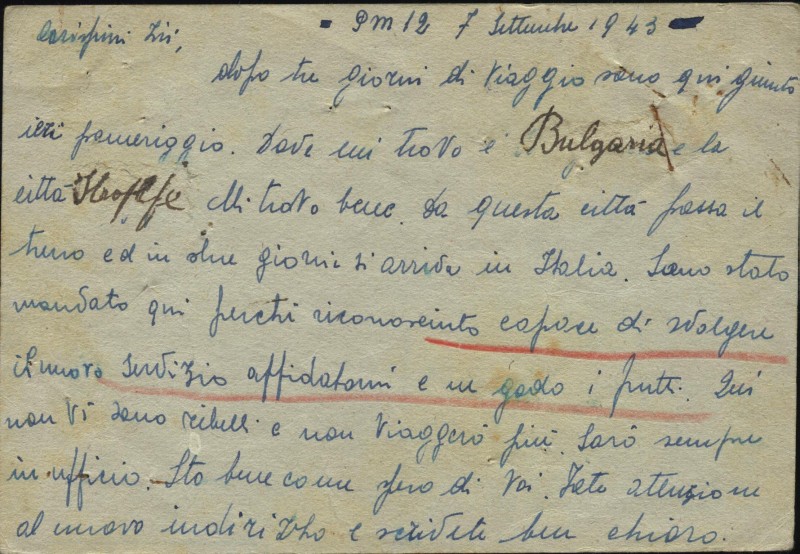 PM 12 7 Settembre 1943
Carissimi Zii,
dopo tre giorni di viaggio sono qui giunto
ieri pomeriggio. Dove mi trovo è Bulgaria e la
città Mi trovo bene. Da questa città passa il
treno ed in due giorni si arriva in Italia. Sono stato
mandato qui perchè riconosciuto capace di svolgere
il nuovo servizio affidatomi e ne godo i frutti. Qui
non vi sono ribelli e non viaggerò più. Sarò sempre
in ufficio. Sto bene come spero di Voi. Fate attenzione
al nuovo indirizzo e scrivete ben chiaro.